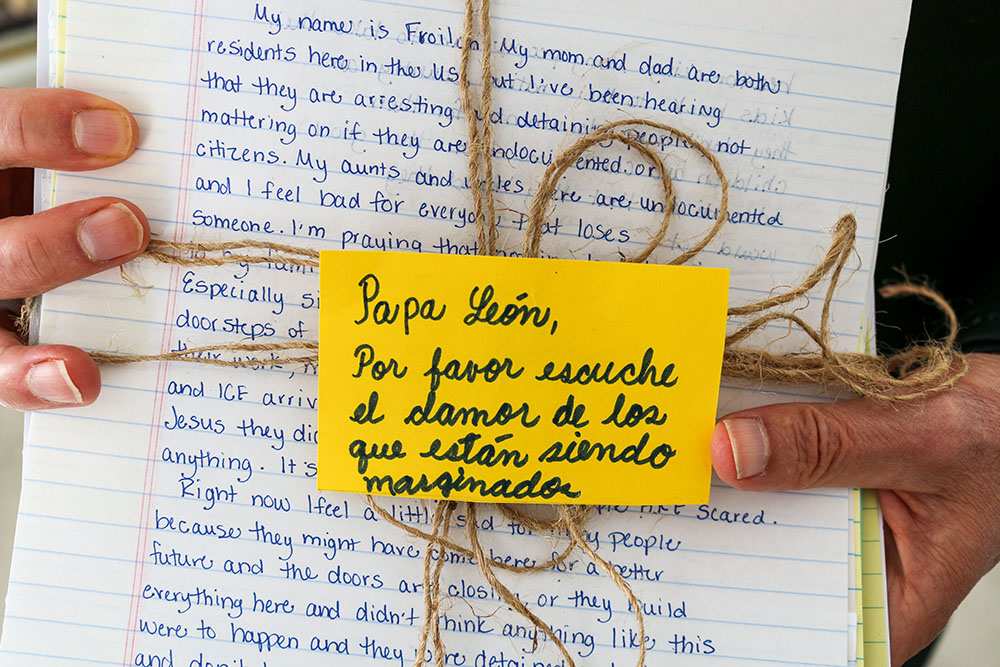 My name is Froilan. My mom and dad are both
residents here in the US, but I've been hearing
that they are arresting and detaining people, not
mattering on if they are undocumented or
citizens. My aunts and uncles here are undocumented
and I feel bad for everyone that loses
someone. I'm praying that
to my fam
Especially si
doorsteps of
their work,
and ICE arriv
Jesus they di
anything. It's
are scared.
Right now I feel a little sad for my people
because they might have come here for a better
future and the doors are closing or they build
everything here and didn't think anything like this
were to happen and they were detained
and don't
Papa León,
Por favor escuche
el clamor de los
que están siendo
marginados